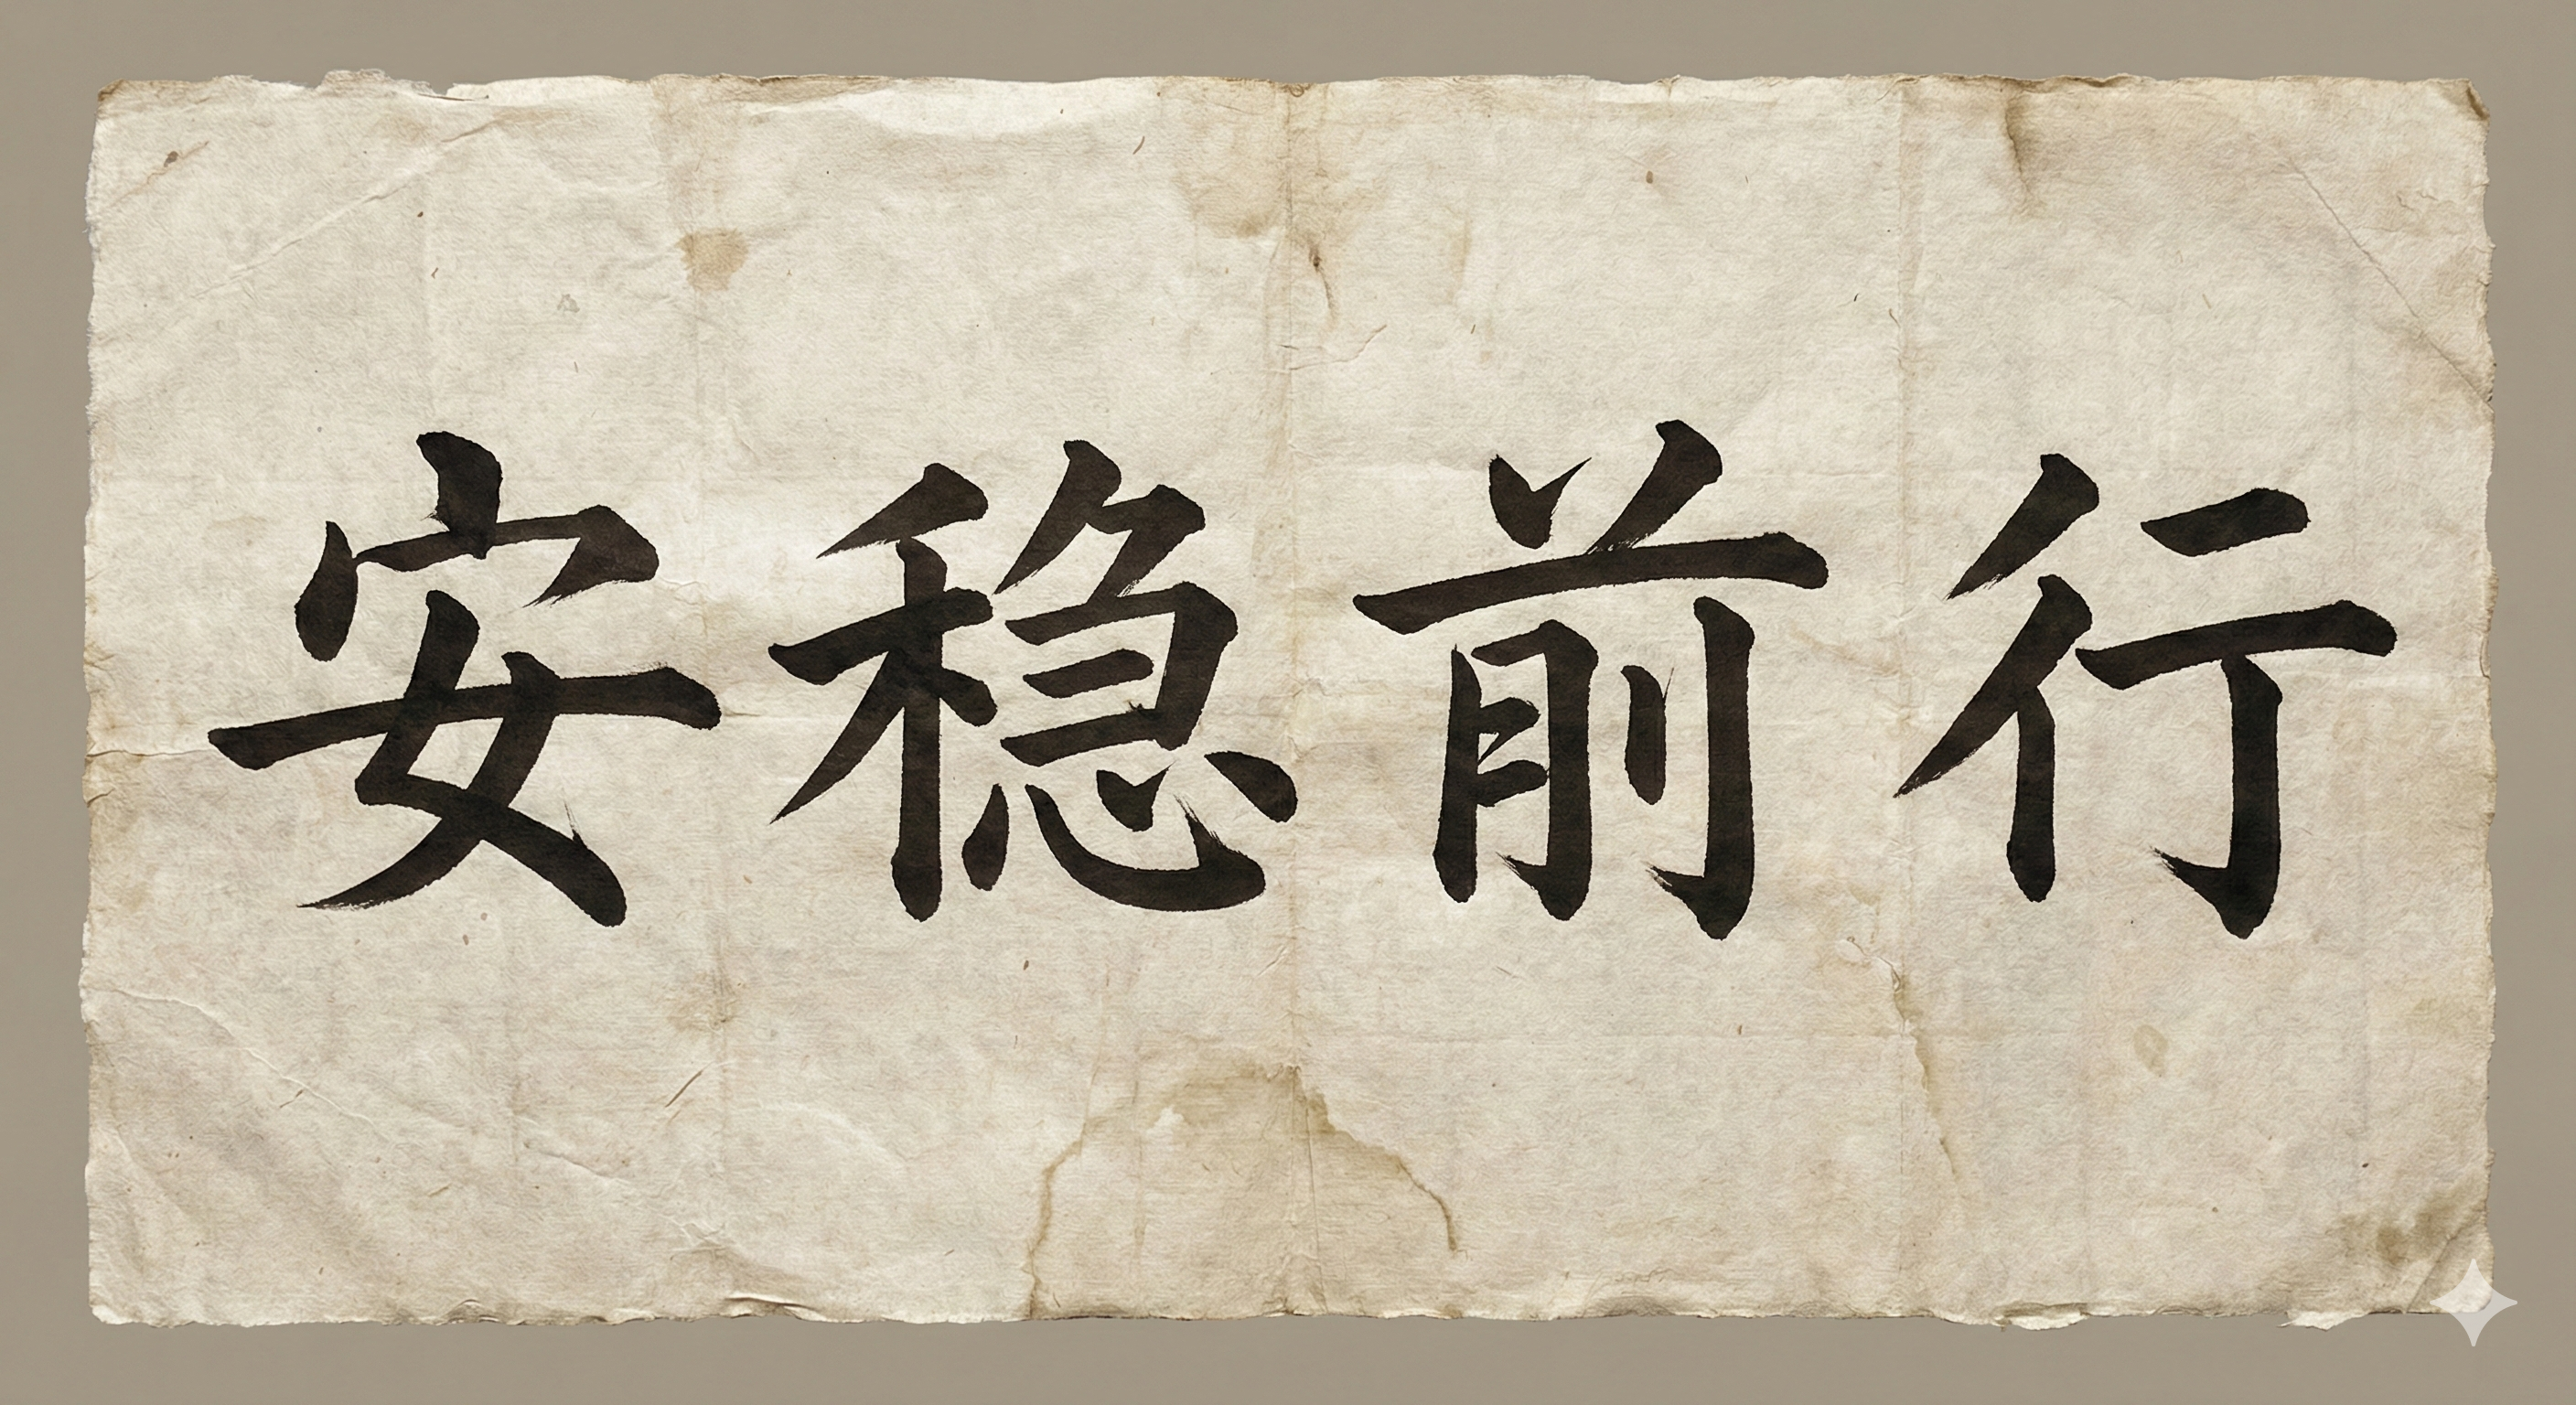 安稳前行